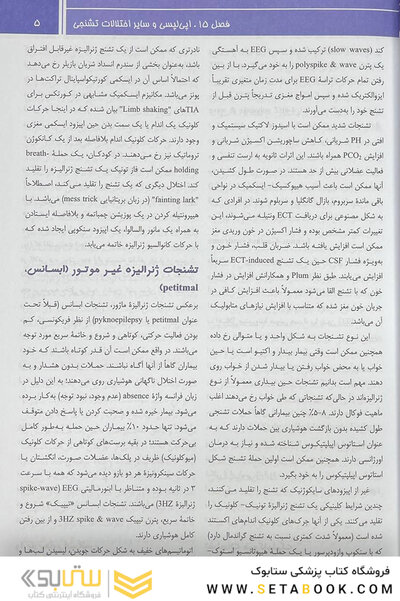 فصل ۱۵. اپی‌لپسی و سایر اختلالات تشنجی
۵
کند (slow waves) ترکیب شده و سپس EEG به آهستگی
یک پترن polyspike & wave را به خود می‌گیرد. با از بین
رفتن تمام حرکات تراسهٔ EEG برای مدت زمان متغیری تقریباً
ایزوالکتریک شده و سپس امواج مغزی تدریجاً پترن قبل از
تشنج خود را به‌دست می‌آورند.
تشنجات شدید ممکن است با اسیدوز لاکتیک سیستمیک و
افتی در PH شریانی، کاهش ساچوریشن اکسیژن شریانی و
افزایش PCO2 همراه باشند. این اثرات ثانویه به ایست تنفسی و
فعالیت عضلانی بیش از حد هستند. در صورت طول کشیدن،
آنها ممکن است باعث آسیب هیپوکسیک- ایسکمیک در نواحی
باقی ماندهٔ سربروم، بازال گانگلیا و سربلوم شوند. در افرادی که
به شکل مصنوعی برای دریافت ECT ونتیله می‌شوند، این
تغییرات کمتر مشخص بوده و فشار اکسیژن در خون وریدی مغز
ممکن است افزایش یافته باشد. ضربان قلب، فشار خون و
به‌ویژه فشار CSF حین یک تشنج ECT-induced سریعاً
افزایش می‌یابند. طبق نظر Plum و همکارانش افزایش در فشار
خون که با تشنج القا می‌شود معمولاً باعث افزایش کافی در
جریان خون مغز شده که متناسب با افزایش نیازهای متابولیک
آن می‌باشد.
این نوع تشنجات به شکل واحد و یا متوالی رخ داده
همچنین ممکن است وقتی بیمار بیدار و اکتیو است یا حین
خواب یا به محض خواب رفتن یا بیدار شدن از خواب روی
دهند. مهم است بدانیم تشنجات حین بیداری معمولاً از نوع
ژنرالیزه‌اند در حالی که تشنجاتی که طی خواب رخ می‌دهند اغلب
ماهیت فوکال دارند. ۸-۵٪ چنین بیمارانی گاهاً حملات تشنجی
طول کشیده بدون بازگشت هوشیاری بین حملات دارند که به
عنوان استاتوس اپیلپتیکوس شناخته شده و نیاز به درمان
اورژانسی دارند. همچنین ممکن است اولین حملهٔ تشنج شکل
استاتوس اپیلپتیکوس را به خود بگیرد.
غیر از اپیزودهای سایکوژنیک که تشنج را تقلید می‌کنند،
چندین شرایط کلینیکی یک تشنج ژنرالیزهٔ تونیک- کلونیک را
تقلید می کنند. یکی از آنها جرک‌های کلونیک اندام‌های کشتند
شده است (معمولاً شدت کمتری نسبت به تشنج گراندمال دارد)
که با سنکوپ وازودپرسور یا یک حملهٔ هیپوتانسیو استوک-
نادرتری که ممکن است از یک تشنج ژنرالیزه غیرقابل افتراق
باشد، به‌عنوان بخشی از سندرم انسداد شریان بازیلر رخ می‌دهد
که احتمالاً اساس آن در ایسکمی کورتیکواسپاینال تراکت‌ها در
پونز می‌باشد. مکانیزم ایسکمیک مشابهی در کورتکس برای
TIAهای "Limb shaking" بیان شده که در اینجا حرکات
کلونیک یک اندام یا یک سمت بدن حین اپیزود ایسمی مغزی
وجود دارند. حرکات کلونیک اندام بلافاصله بعد از یک کانکوژن
تروماتیک نیز رخ می‌دهند. در کودکان، یک حملهٔ breath-
holding ممکن است فاز تونیک یک تشنج ژنرالیزه را تقلید
کند. اختلال دیگری که یک تشنج را تقلید می‌کند، اصطلاحاً
"fainting lark" (در زبان بریتانیایی mess trick) می‌باشد.
هیپرونتیله کردن در یک پوزیشن چمباتمه و بلافاصله ایستادن
به همراه یک مانور والسالوا، یک اپیزود سنکوپی ایجاد شده که
با حرکات کانوالسیو ژنرالیزه خاتمه می‌یابد.
تشنجات ژنرالیزه غیر موتور (ابسانس،
petitmal)
برعکس تشنجات ژنرالیزهٔ ماژور، تشنجات ابسانس (قبلاً تحت
عنوان petitmal یا pyknoepilepsy) از نظر فریکونسی، کم
بودن فعالیت حرکتی، کوتاهی و شروع و خاتمهٔ سریع مورد توجه
می‌باشند. در واقع ممکن است آن قدر کوتاه باشند که خود
بیماران گاهاً از آنها آگاه نباشند. حملات بدون هشدار و به
صورت اختلال ناگهانی هوشیاری روی می‌دهند؛ به این دلیل در
زبان فرانسه واژهٔ absence (عدم وجود، نبود توجه) به‌کار برده
می‌شود. بیمار خیره شده و صحبت کردن یا پاسخ دادن متوقف
می‌شود. تنها حدود ۱۰٪ بیماران حین حمله به‌طور کامل
بی‌حرکت هستند؛ در بقیه برست‌های کوتاهی از حرکات کلونیک
(میوکلونیک) ظریف در پلک‌ها، عضلات صورت، انگشتان یا
حرکات سینکرونیزهٔ هر دو بازو دیده می‌شود که همه با سرعت
۳ در ثانیه بوده و متناظر با ابنورمالیتی EEG (spike-wave
ژنرالیزهٔ 3HZ) می‌باشند. تشنجات ابسانس «تیپیک» شروع و
خاتمهٔ سریع، پترن تیپیک 3HZ spike & wave و از بین رفتن
کامل هوشیاری دارند.
اتوماتیسم‌های خفیف به شکل حرکات جویدن، لیسیدن لب‌ها و
فروشگاه کتاب پزشکی ستابوک
WWW.SETABOOK.COM
ستابوک
فروشگاه اینترنتی کتاب